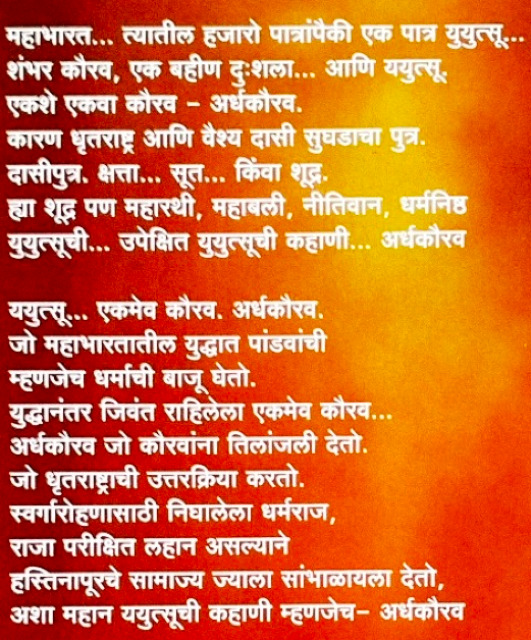 महाभारत... त्यातील हजारो पात्रांपैकी एक पात्र युयुत्सू...
शंभर कौरव, एक बहीण दुःशला... आणि ययुत्सू.
एकशे एकवा कौरव – अर्धकौरव.
कारण धृतराष्ट्र आणि वैश्य दासी सुघडाचा पुत्र.
दासीपुत्र. क्षत्ता... सूत... किंवा शूद्र.
ह्या शूद्र पण महारथी, महाबली, नीतिवान, धर्मनिष्ठ
युयुत्सूची... उपेक्षित युयुत्सूची कहाणी... अर्धकौरव
ययुत्सू... एकमेव कौरव. अर्धकौरव.
जो महाभारतातील युद्धात पांडवांची
म्हणजेच धर्माची बाजू घेतो.
युद्धानंतर जिवंत राहिलेला एकमेव कौरव...
अर्धकौरव जो कौरवांना तिलांजली देतो.
जो धृतराष्ट्राची उत्तरक्रिया करतो.
स्वर्गारोहणासाठी निघालेला धर्मराज,
राजा परीक्षित लहान असल्याने
हस्तिनापूरचे सामाज्य ज्याला सांभाळायला देतो,
अशा महान ययुत्सूची कहाणी म्हणजेच– अर्धकौरव